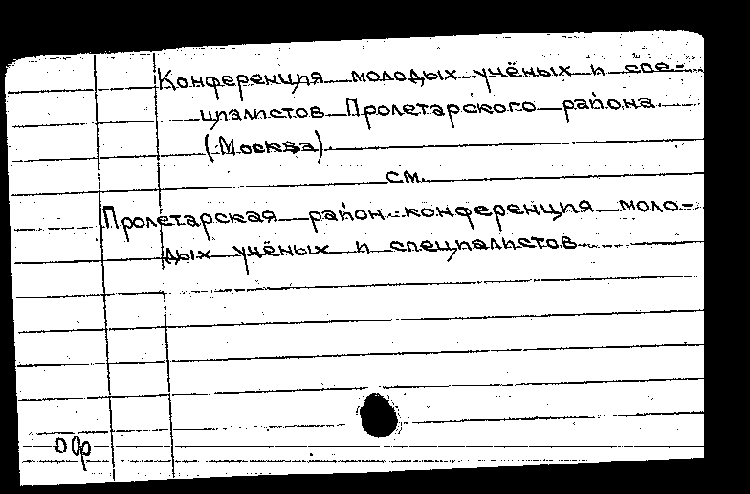 Конференция молодых учёных и спе-
циалистов Пролетарского района
(Москва).
см.
Пролетарская район. конференция моло-
дых учёных и специалистов